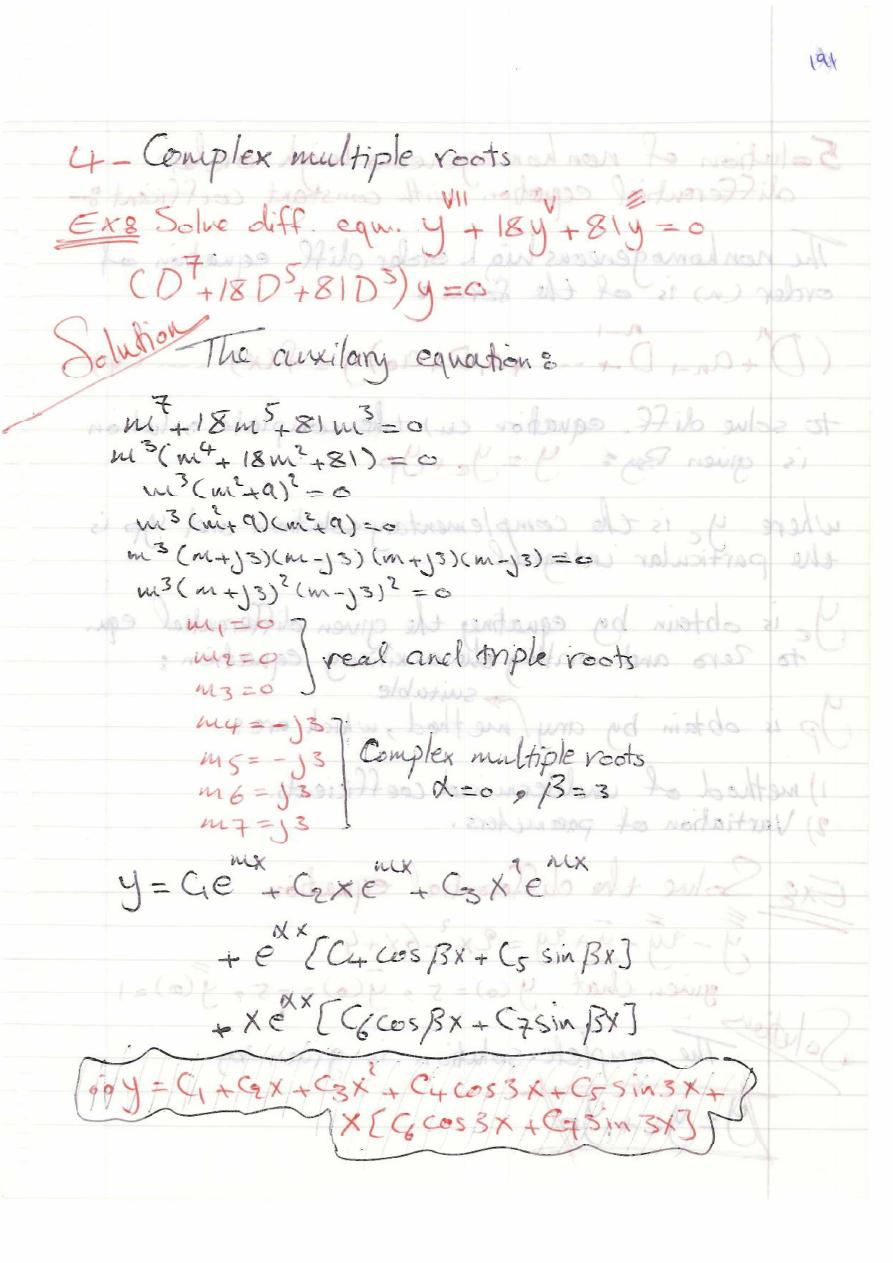 191
4- Complex multiple roots
Ex: Solve diff. equ. y^VII + 18y^V + 81y''' = 0
(D^7+18D^5+81D^3)y=0
Solution
The auxilary equation:
m^7+18m^5+81m^3=0
m^3(m^4+18m^2+81)=0
m^3(m^2+9)^2=0
m^3(m^2+9)(m^2+9)=0
m^3(m+j3)(m-j3)(m+j3)(m-j3)=0
m^3(m+j3)^2(m-j3)^2=0
m1=0
m2=0 } real and triple roots
m3=0
m4=-j3
m5=-j3 Complex multiple roots
m6=j3 α=0, β=3
m7=j3
y=C1e^mx+C2xe^mx+C3x^2e^mx
+e^αx[C4cosβx+C5 sinβx]
+xe^αx[C6cosβx+C7sinβx]
∴y=C1+C2x+C3x^2+C4cos3x+C5 sin3x+
x[C6cos3x+C7sin3x]